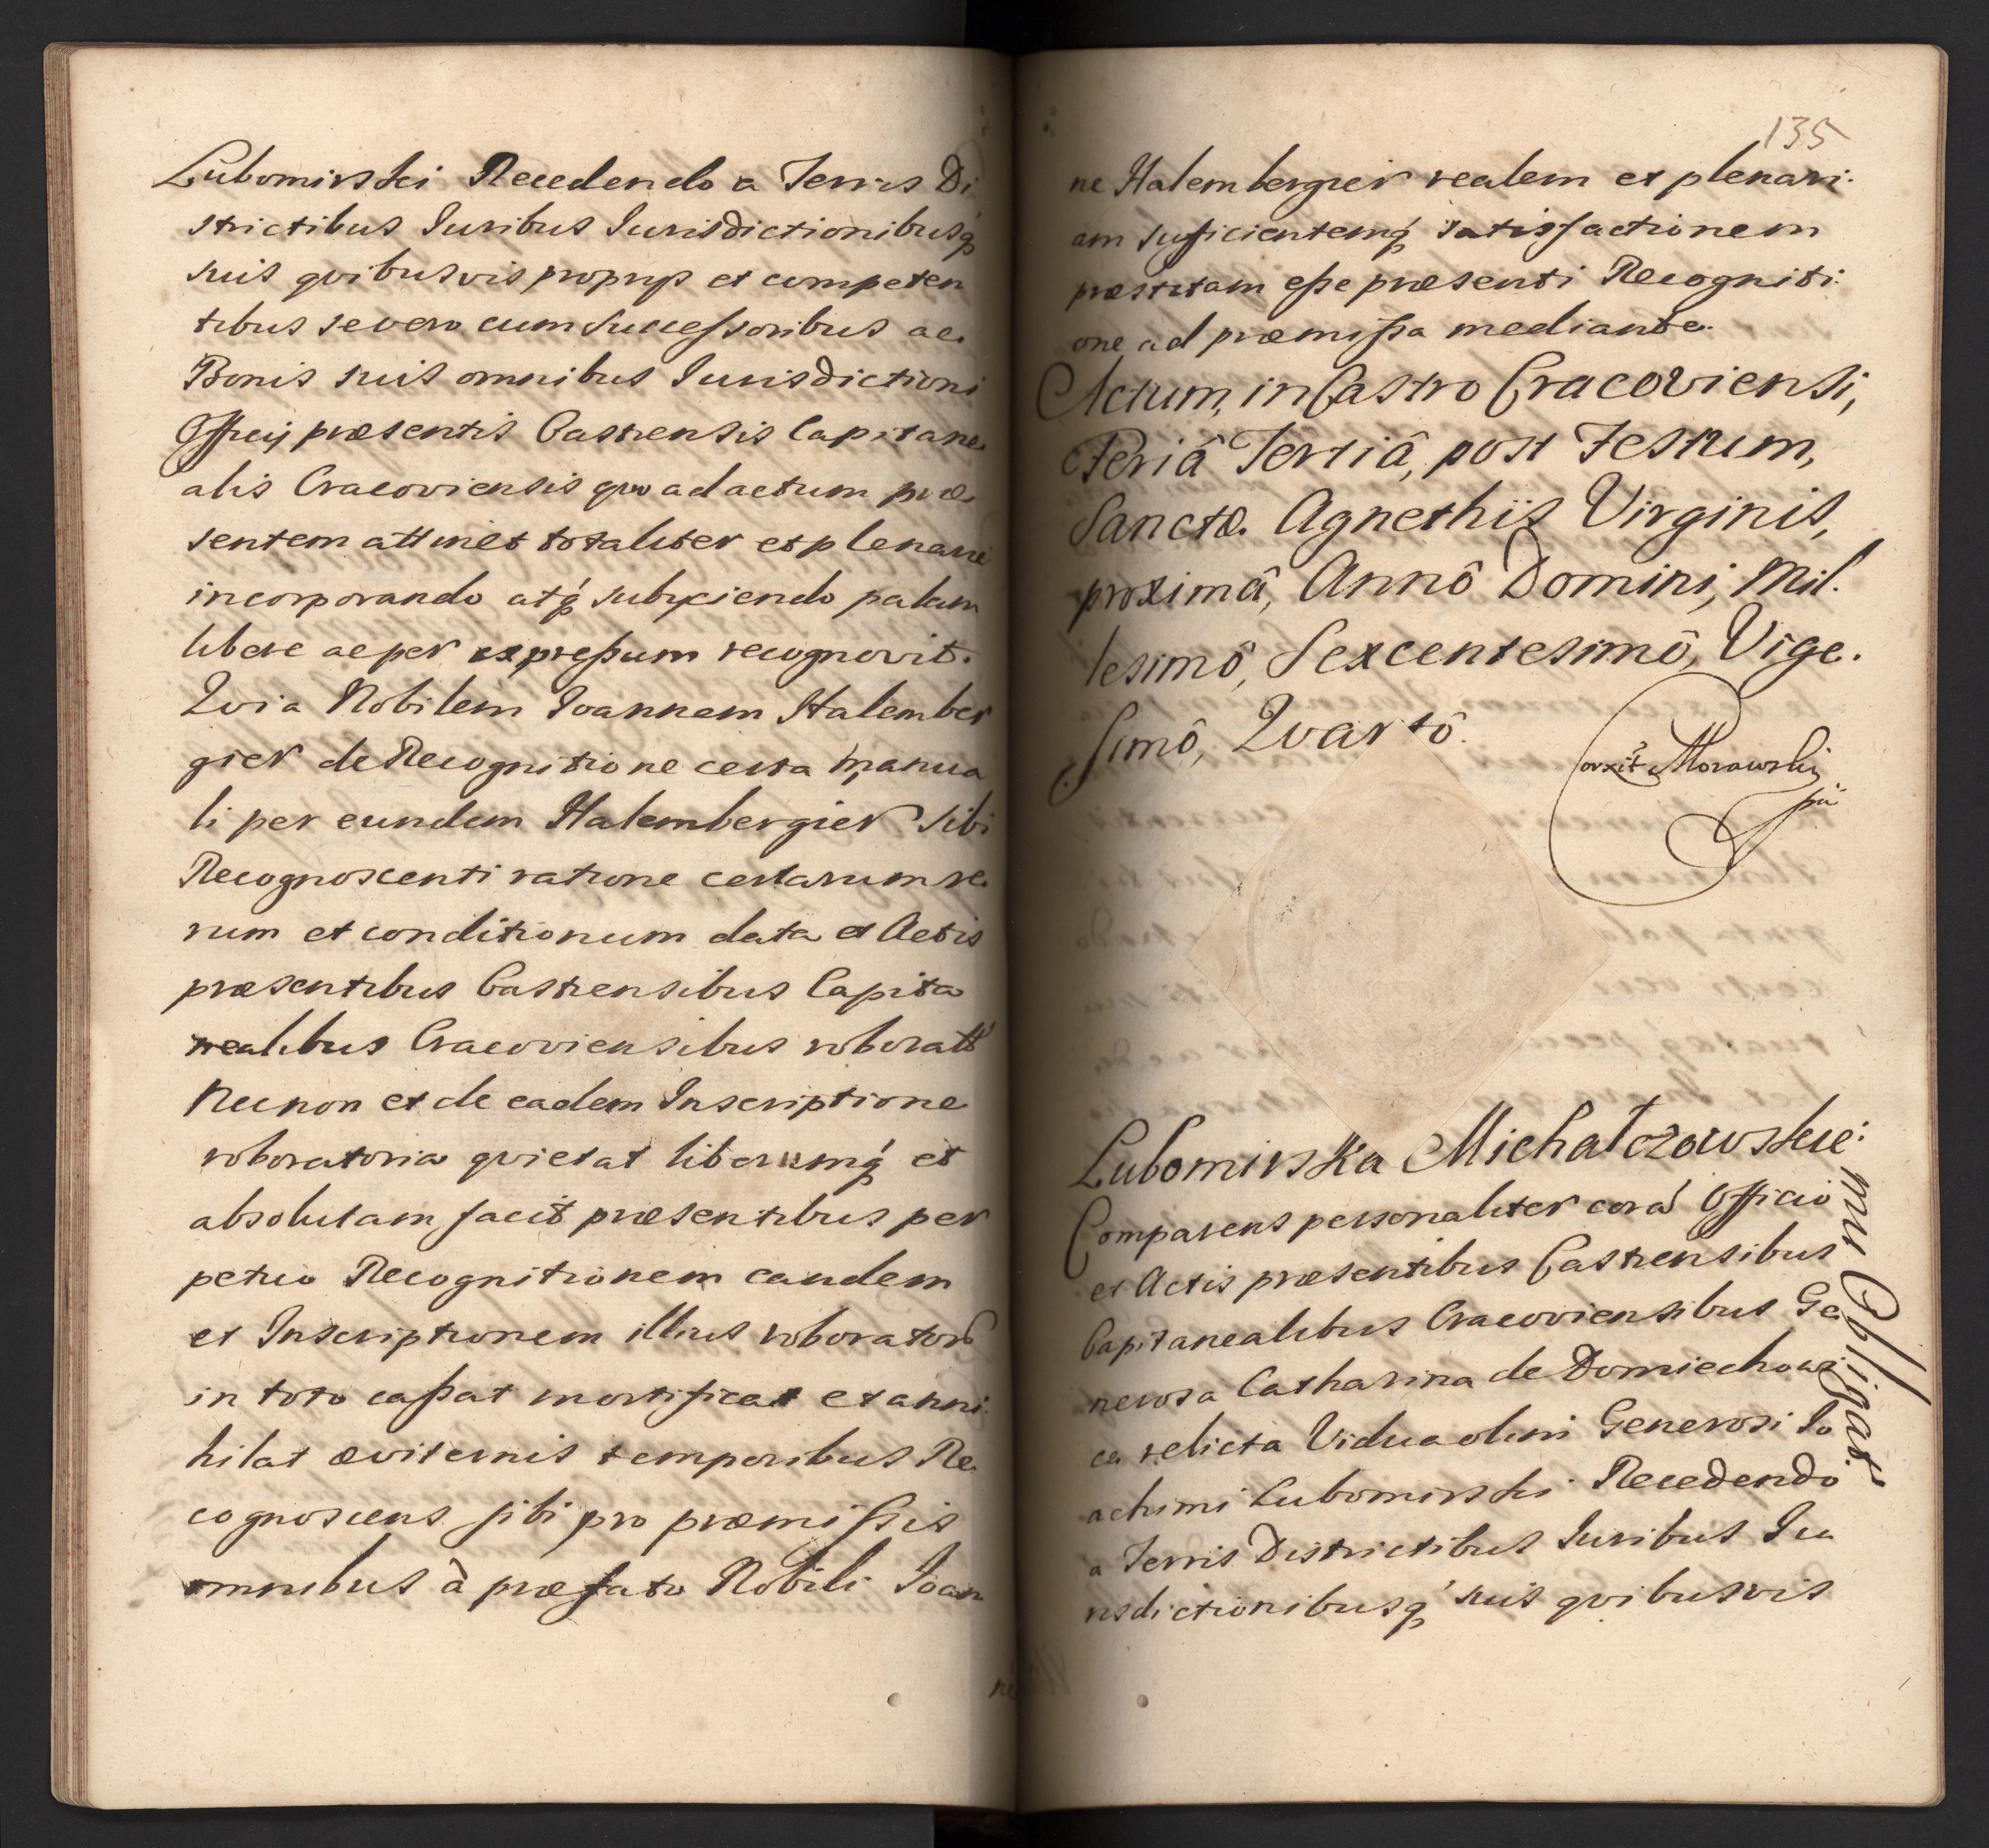 Lubomirski Recedendo a Terris Di
strictibus Iuribus Iurisdictionibusq́
suis qvibusvis proprys et competen
tibus se vero cum Successoribus ac
Bonis suis omnibus Iurisdictioni
Officij præsentis Castrensis Capitane
alis Cracoviensis quo ad actum præ
sentem attinet totaliter et plenarie
incorporando atq́ subyciendo palam
libere ac per expreßum recognovit.
Qvia Nobilem Ioannem Halember
gier de Recognitione certa manua
li per eundem Halembergier Sibi
Recognoscenti ratione certarum re
rum et conditionum data et Actis
præsentibus Castrensibus Capita
nealibus Cracoviensibus roborata
Necnon et de eadem Inscriptione
roboratoria qvietat liberumq́ et
absolutam facit præsentibus per
petuo Recognitionem eandem
et Inscriptionem illius roborator
in toto caßat mortificat et anni
hilat æviternis temporibus Re
cognoscens sibi pro præmißis
omnibus à præfato Nobili Ioan
ne
135
ne Halembergier realem et plenari
am suficientemq́ satisfactionem
præstitam eße præsenti Recogniti
one ad præmißa mediante.
Actum, in Castro Cracoviensi,
Feriâ Tertiâ, post Festum,
Sanctæ Agnethis Virginis,
proximâ, Annô Domini, Mil.
lesimô, Sexcentesimô, Vige.
simô, Qvartô.
Corxit Morawskij
pū
Lubomirska Michałczowskie:
mu Obligat
Comparens personaliter corá Officio
et Actis præsentibus Castrensibus
Capitanealibus Cracoviensibus Ge
nerosa Catharina de Domiechowi
ce relicta Vidua olim Generosi Io
achimi Lubomirski Recedendo
a Terris Districtibus Iuribus Iu
risdictionibusq́ suis qvibusvis